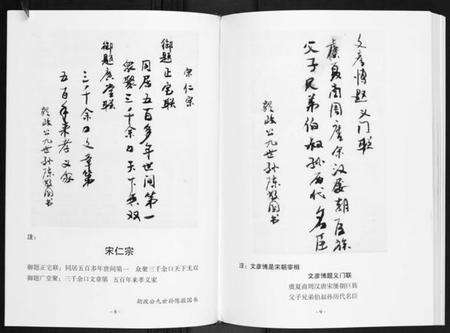 宋仁宗
御题正宅联
同居五百多年世间第一
众聚三千余口天下无双
御题广堂联
三千余口文章第
五百年来孝义家
乾政公九世孙陈 图书
注:
宋仁宗
御题正宅联:同居五百多年世间第一 众聚三千余口天下无双
御题广堂聚:三千余口文章第 五百年来孝义家
乾政公九世孙陈 图书
- 8 -
文彦博题义门联
虞夏商周唐宋汉屡朝臣族
父子兄弟伯叔孙历代名臣
乾政公九世孙陈 图书
注:文彦博是宋朝宰相
文彦博题义门联
虞夏商周汉唐宋屡朝巨族
父子兄弟伯叔孙历代名臣
- 9 -